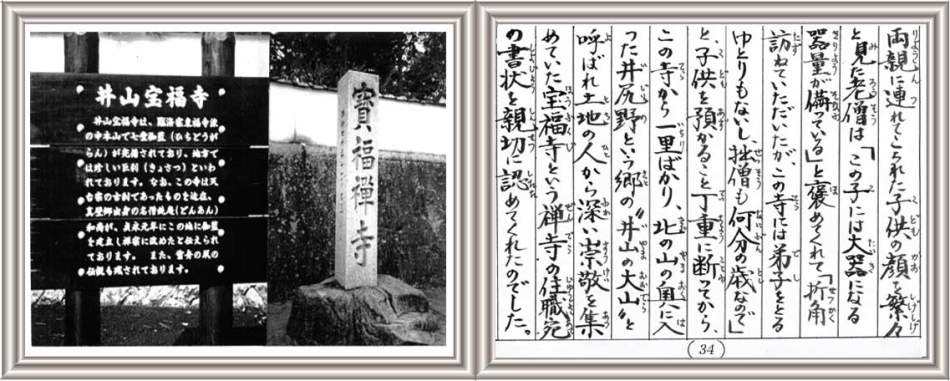 井山宝福寺
井山宝福寺は、臨済宗東福寺派
の中本山で七堂伽藍(ひちどうが
らん)が完備されており、地方で
は珍しい巨刹(きょさつ)といわ
れております。なお、この寺は天
台宗の古刹であったものを近在、
真壁郷出身の名僧鈍庵(どんあん)
和尚が、貞永元年にこの地に伽藍
を建立し禅宗に改めたと伝えられ
ております。また、雪舟の鼠の
伝説も残されております。
寶福禪寺
両親に連れてこられた子供の顔を繁々
と見た老僧は「この子には大器になる
器量が備っている」と褒めてくれて「折角
訪ねていただいたが、この寺には弟子をとる
ゆとりもないし拙僧も何分の歳なので」
と、子供を預かること丁重に断ってから、
この寺から一里ばかり、北の山の奥に入
った井尻野という郷の〝井山の大山〟と
呼ばれ土地の人から深い崇敬を集
めていた宝福寺という禅寺の住職宛
の書状を親切に認めてくれたのでした。
34